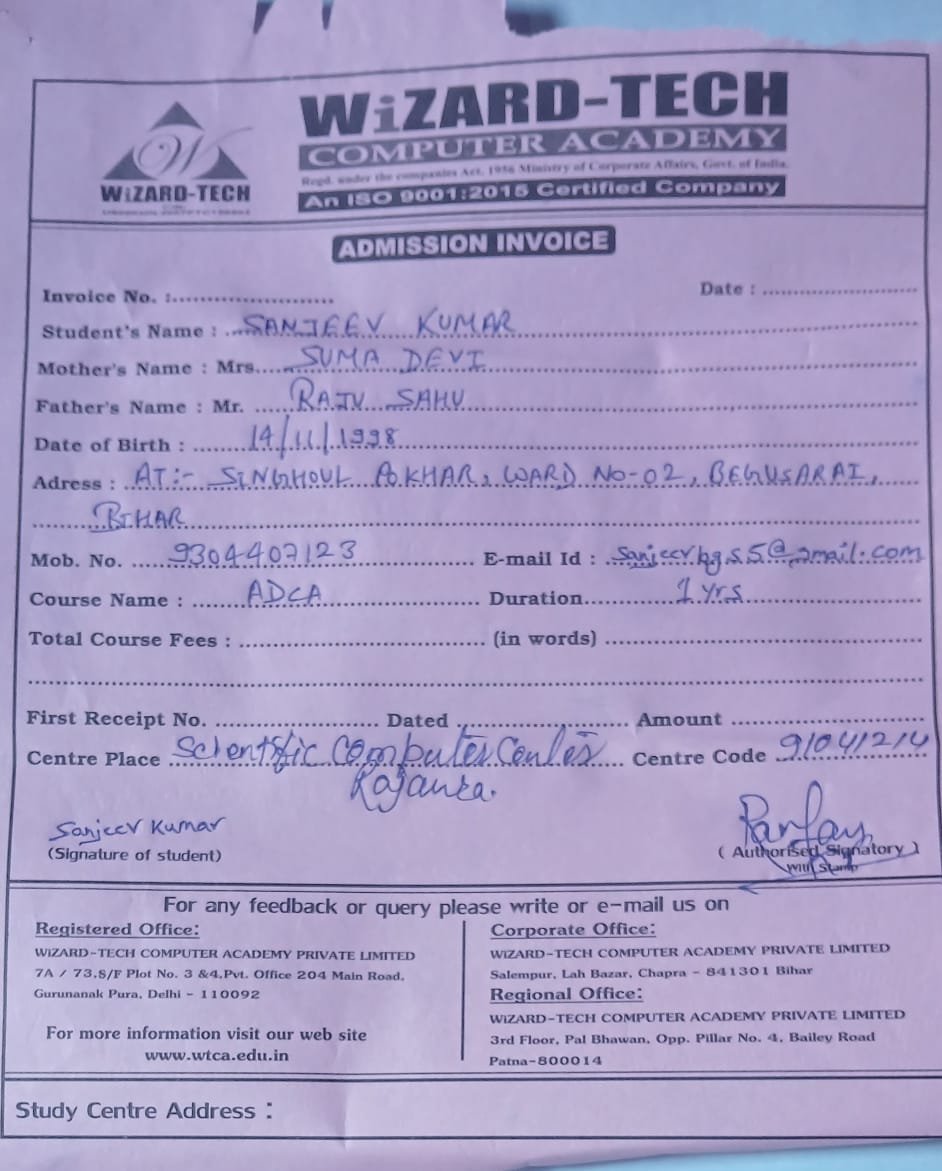 WiZARD-TECH
COMPUTER ACADEMY
Regd. under the companies Act, 1956 Ministry of Corporate Affairs, Govt. of India.
An ISO 9001:2015 Certified Company
W
WiZARD-TECH
ADMISSION INVOICE
Invoice No. : Date :
Student's Name : SANJEEV KUMAR
Mother's Name : Mrs. SUMA DEVI
Father's Name : Mr. RAJU SAHU
Date of Birth : 14/11/1998
Adress : AT:- SINGHOUL POKHAR, WARD NO-02, BEGUSARAI,
BIHAR
Mob. No. 9304407123 E-mail Id : sanjeevbgs5@gmail.com
Course Name : ADCA Duration 1 yrs
Total Course Fees : (in words)
First Receipt No. Dated Amount
Centre Place Scientific Computer Center Centre Code 91041214
Sanjeev Kumar
(Signature of student) ( Authorised Signatory )
With Stamp
For any feedback or query please write or e-mail us on
Registered Office:
WiZARD-TECH COMPUTER ACADEMY PRIVATE LIMITED
7A / 73,S/F Plot No. 3 &4,Pvt. Office 204 Main Road,
Gurunanak Pura, Delhi - 110092
For more information visit our web site
www.wtca.edu.in
Corporate Office:
WiZARD-TECH COMPUTER ACADEMY PRIVATE LIMITED
Salempur, Lah Bazar, Chapra - 841301 Bihar
Regional Office:
WiZARD-TECH COMPUTER ACADEMY PRIVATE LIMITED
3rd Floor, Pal Bhawan, Opp. Pillar No. 4, Bailey Road
Patna-800014
Study Centre Address :